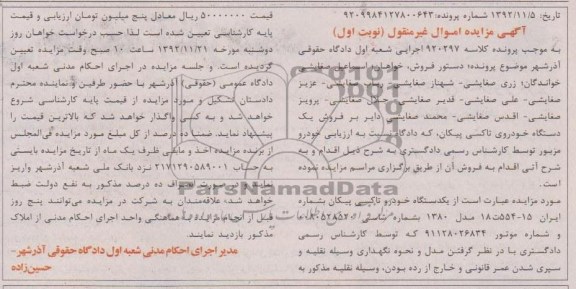 تاریخ: ۱۳۹۲/۱۱/۵ شماره پرونده: ۹۲۰۹۹۸۴۱۲۷۸۰۰۶۴۳
آگهی مزایده اموال غیرمنقول (نوبت اول)
به موجب پرونده کلاسه ۹۲۰۲۹۷ اجرایی شعبه اول دادگاه حقوقی
آذرشهر موضوع پرونده؛ دستور فروش، خواهان: اسماعیل صفایشی
خواندگان: زری صفایشی- شهناز صفایشی- صفایشی- عزیز
صفایشی- علی صفایشی- قدیر صفایشی- صفایشی- پرویز
صفایشی- اقدس صفایشی- محمد صفایشی دایر بر فروش یک
دستگاه خودروی تاکسی پیکان، که دادگاه نسبت به ارزیابی خودرو
مزبور توسط کارشناس رسمی دادگستری به شرح ذیل اقدام و به
شرح آتی اقدام به فروش آن از طریق برگزاری مراسم مزایده نموده
است.
مورد مزایده عبارت است از یکدستگاه خودرو تاکسی پیکان بشماره
ایران ۱۵-۵۵۴ت۱۸ مدل ۱۳۸۰ بشماره شاسی
و شماره موتور ۹۱۱۲۸۰۲۶۸۳۴ که توسط کارشناس رسمی
دادگستری با در نظر گرفتن مدل و نحوه نگهداری وسیله نقلیه و
سپری شدن عمر قانونی و خارج از رده بودن، وسیله نقلیه مذکور به
قیمت ۵۰۰۰۰۰۰۰ ریال معادل پنج میلیون تومان ارزیابی و قیمت
پایه کارشناسی تعیین شده است لذا حسب درخواست خواهان روز
دوشنبه مورخه ۱۳۹۲/۱۱/۲۱ ساعت ۱۰ صبح وقت مزایده تعیین
گردیده است. و جلسه مزایده در اجرای احکام مدنی شعبه اول
دادگاه عمومی (حقوقی) آذرشهر با حضور طرفین و نماینده محترم
دادستان تشکیل و مورد مزایده از قیمت پایه کارشناسی شروع
خواهد شد و به کسی واگذار خواهد شد که بالاترین قیمت را
پیشنهاد نماید. ضمنا ده درصد از کل مبلغ مورد مزایده فی‌المجلس
از برنده مزایده اخذ و مابقی ظرف یک ماه از تاریخ مزایده بایستی
به حساب ۲۱۷۱۲۹۰۵۸۹۰۰۱ نزد بانک ملی شعبه آذرشهر واریز
نماید در صورت انصراف ده درصد مذکور به نفع دولت ضبط
خواهد شد؛ علاقه‌مندان به شرکت در مزایده می‌توانند پنج روز
قبل از انجام مزایده با هماهنگی واحد اجرای احکام مدنی از املاک
مذکور بازدید نمایند.
مدیر اجرای احکام مدنی شعبه اول دادگاه حقوقی آذرشهر-
حسین‌زاده
ParsNamadData